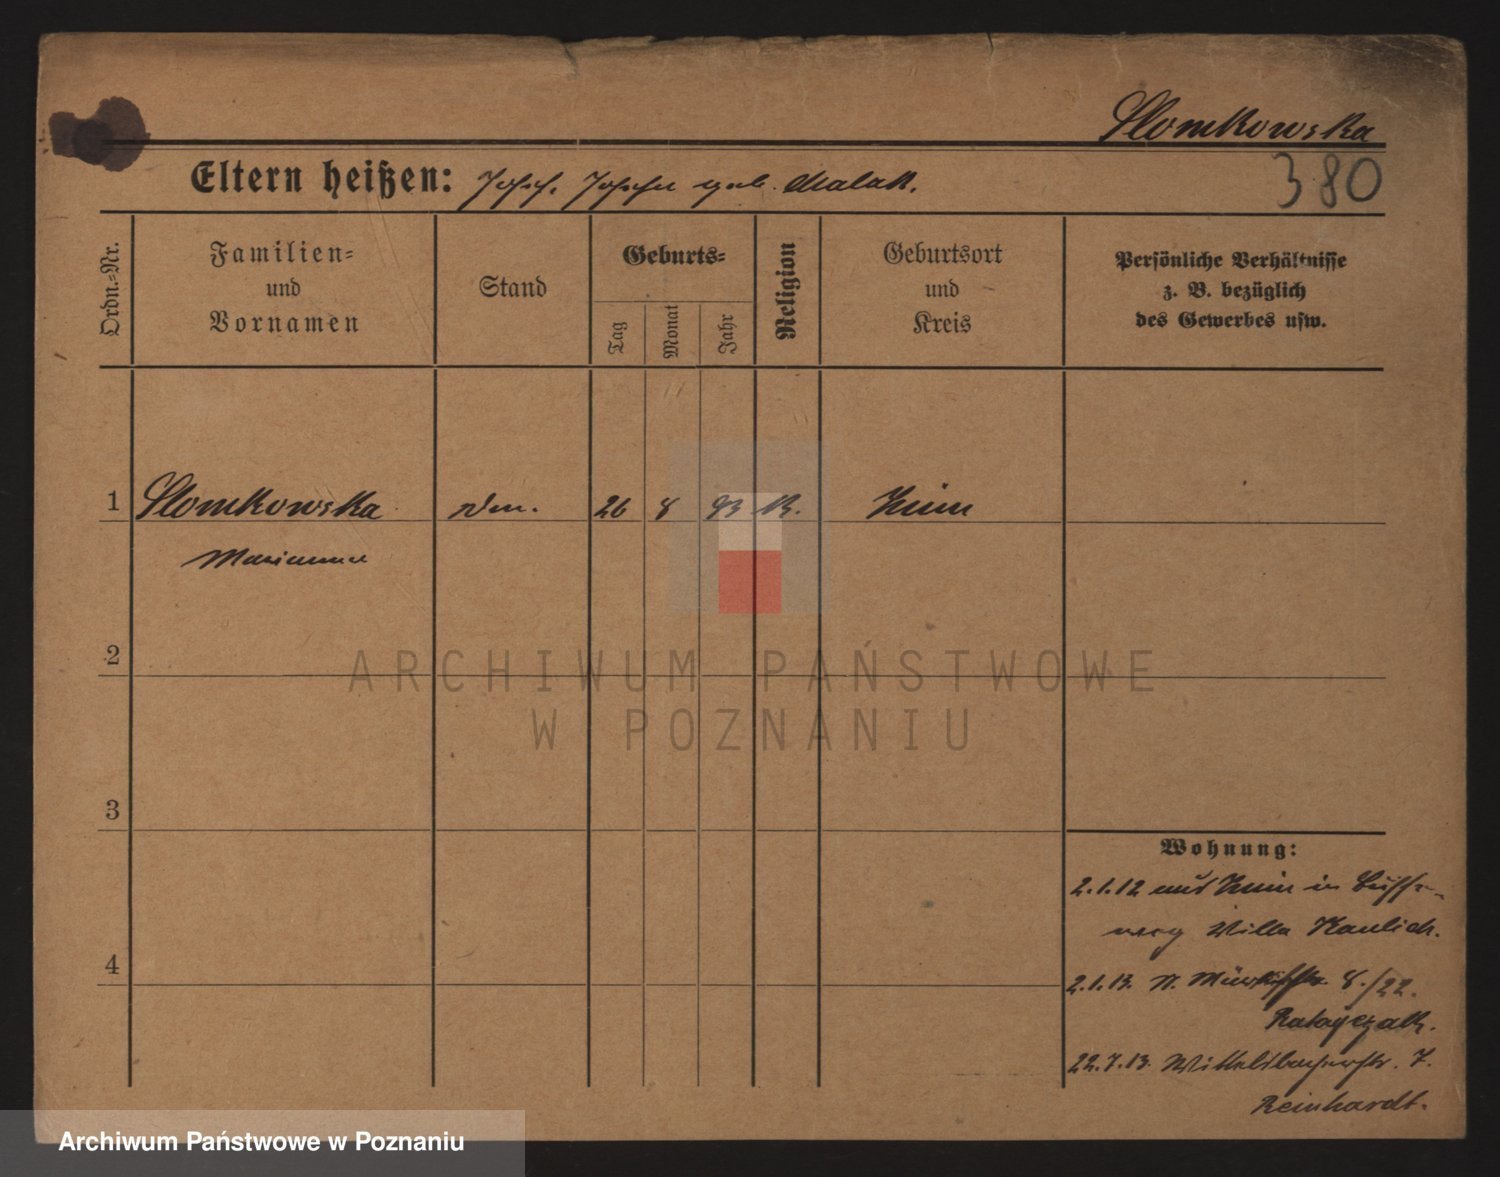 Slomkowska
380
Eltern heißen: Josef. Josefa geb. Malak.
Ordn.=Nr.
Familien=
und
Vornamen
Stand
Geburts=
Tag
Monat
Jahr
Religion
Geburtsort
und
Kreis
Persönliche Verhältnisse
z. B. bezüglich
des Gewerbes usw.
1 Slomkowska 26 8 93 K.
Marianna
2
3
4
Wohnung:
2.1.12 aus in
weg Villa Kaulich.
2.1.13. N. 8./22.
Ratajczak.
22.7.13. Wittelsbacherstr. 7.
Reinhardt.
ARCHIWUM PAŃSTWOWE
W POZNANIU
Archiwum Państwowe w Poznaniu